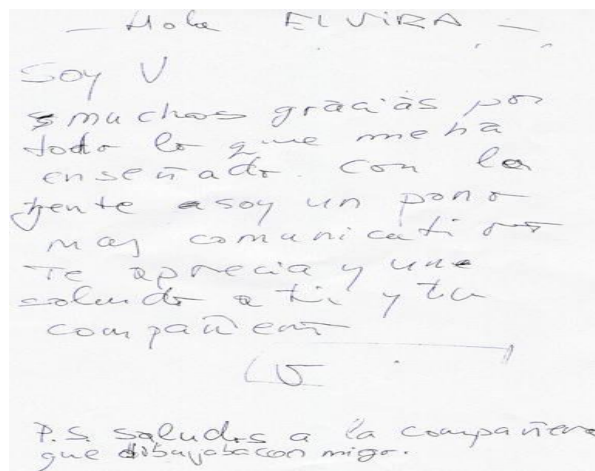 — Hola ELVIRA —
Soy V
muchas gracias por
todo lo que me ha
enseñado. Con la
gente soy un poco
mas comunicativo
Te aprecia y une
saludo a ti y tu
compañera
V
P.S. saludos a la compañera
que dibujaba con migo.